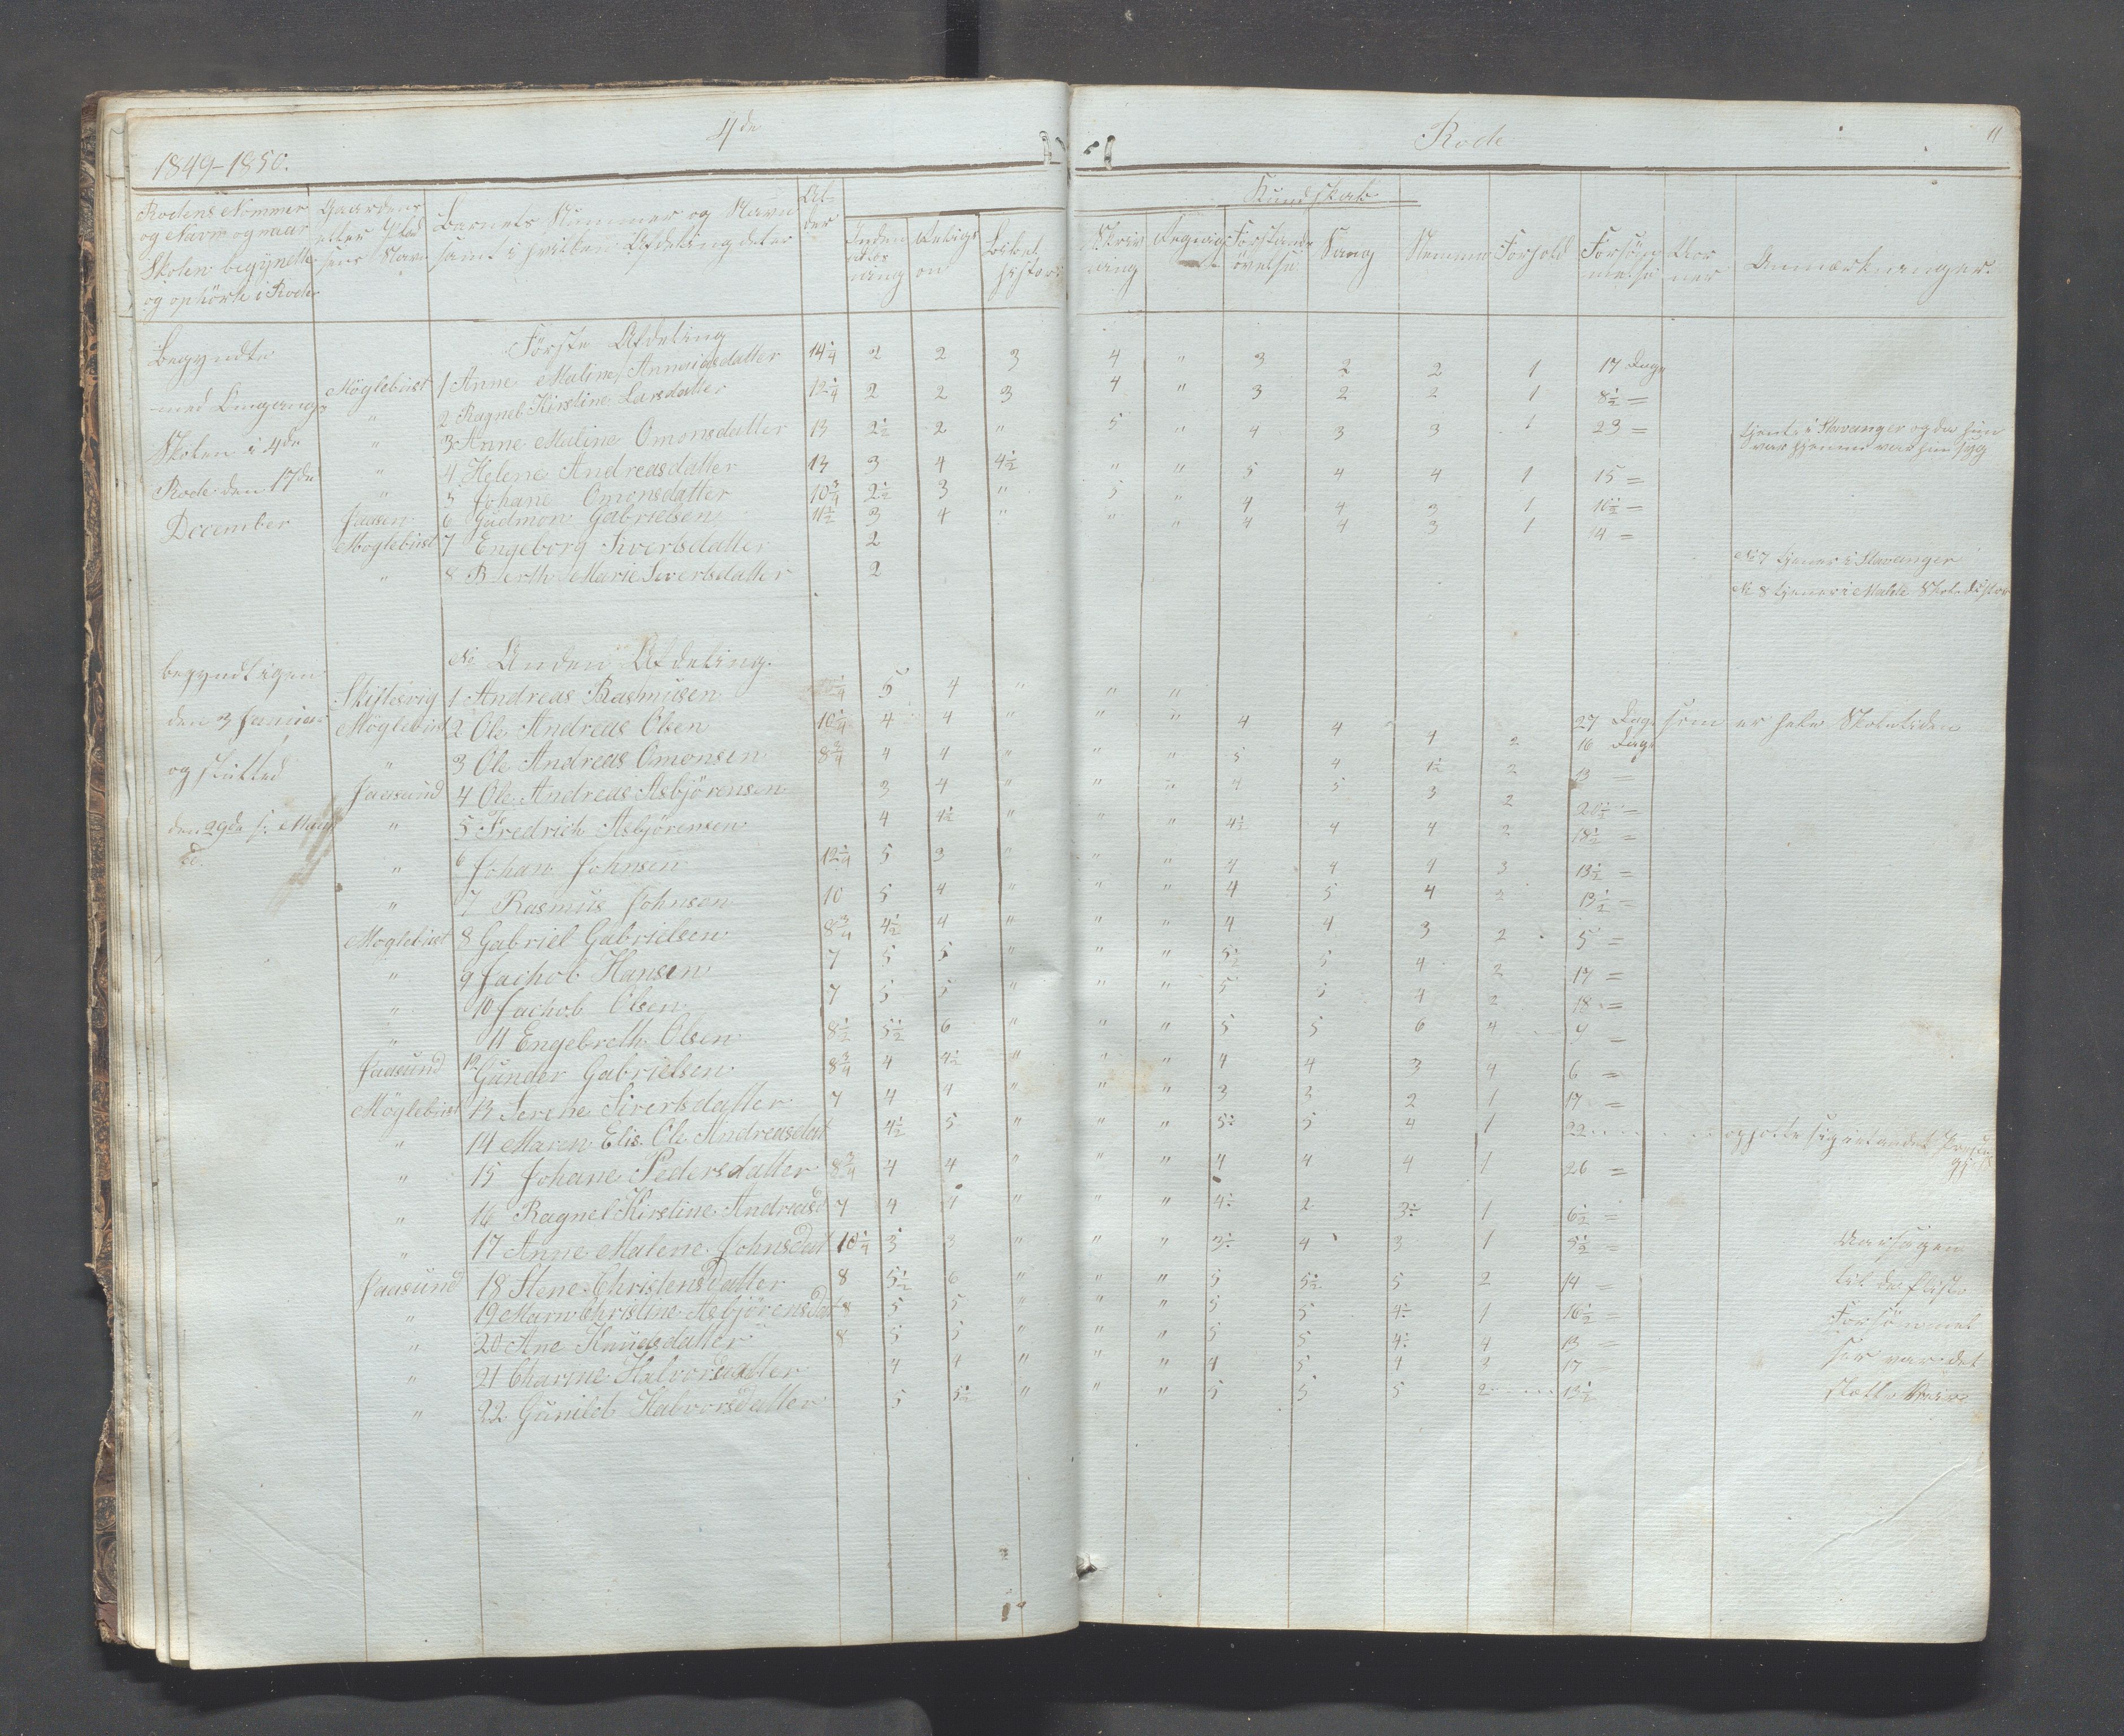 4de Rode 11
1849-1850.
Kundskab
Rodens Nommer
og Navn og naar
Skolen begyndte
og ophörte i Roden
Gaardens
eller Plad
sens Navn
Barnets Nummer og Navn
samt i hvilken Afdeling det er
Al-
der
Inden
ad læs
ning
Religi
on
Bibel
histori
Skriv
ning
Regning
Forstands
övelse
Sang
Nemme
Forhold
Forsöm
melse
Anmærkninger.
Begyndte
med Omgangs
Skolen i 4de
Rode den 17de
December
Förste Afdeling
Möglebust 1 Anne Maline Annanidsdatter 14 1/4 2 2 3 4 " 3 2 2 1 17 Dage
" 2 Ragnel Kirstine Larsdatter 12 1/4 2 2 3 4 " 3 2 2 1 8 1/2 =
" 3 Anne Maline Omonsdatter 13 2 1/2 2 " 5 " 4 3 3 1 23 = tjente i Stavanger og da hun
var hjemme var hun syg
" 4 Helene Andreasdatter 13 3 4 4 1/2 " " 5 4 4 1 15 =
" 5 Johane Omonsdatter 10 3/4 2 1/2 3 " 5 " 4 4 3 1 10 1/2 =
Jaasun 6 Gudmon Gabrielsen 11 1/2 3 4 " " " 4 4 3 1 14 =
Möglebust 7 Engeborg Sivertsdatter 2 No 7 tjener i Stavanger
" 8 Berthe Marie Sivertsdatter 2 No 8 tjener i Malde Skoledistor
begyndt igen
den 3 Januar
og slutted
den 29de s: Maaned
No Anden Afdeling.
Skiftesvig 1 Andreas Rasmusen 5 4 " " "
27 Dage som er hele Skoletiden
Möglebust 2 Ole Andreas Olsen 10 1/4 4 4 " " " 4 4 4 2 16 Dage
" 3 Ole Andreas Omonsen 8 3/4 4 4 " " " 5 4 1 1/2 2 13 =
Jaasund 4 Ole Andreas Asbjörensen 3 4 " " " 4 5 3 2 20 1/2 =
" 5 Fredrich Asbjörensen 4 4 1/2 " " " 4 1/2 4 4 2 18 1/2 =
" 6 Johan Johnsen 12 1/4 5 3 " " " 4 4 4 3 13 1/2 =
" 7 Rasmus Johnsen 10 5 4 " " " 4 5 4 2 13 1/2 =
Möglebust 8 Gabriel Gabrielsen 8 3/4 4 1/2 4 " " " 4 4 3 2 5 =
" 9 Jachob Hansen 7 5 5 " " " 5 1/2 5 4 2 17 =
" 10 Jachob Olsen 7 5 5 " " " 5 5 4 2 18 =
" 11 Engebreth Olsen 8 1/2 5 1/2 6 " " " 5 5 6 4 9 =
Jaasund 12 Gunder Gabrielsen 8 3/4 4 4 1/2 " " " 4 4 3 4 6 =
Möglebust 13 Serine Sivertsdatter 7 4 4 " " " 3 3 2 1 17 =
" 14 Maren Elis. Ole Andreasdat 4 1/2 5 " " " 5 1/2 5 4 1 22
" 15 Johane Pedersdatter 8 3/4 4 4 " " " 4 4 4 1 26 =
" 16 Ragnel Kirstine Andreasd 7 4 4 " " " 4÷ 2 3÷ 1 6 1/2 =
" 17 Anne Malene Johnsdat 10 1/4 3 3 " " " 3÷ 4 3 1 5 1/2 =
Jaasund 18 Stene Christensdatter 8 5 1/2 6 " " " 5 5 1/2 5 2 14 =
" 19 Maren Christine Asbjörensdat 8 5 5 " " " 5 5 4÷ 1 16 1/2 =
" 20 Ane Knudsdatter 8 5 5 " " " 5 5 4÷ 4 13 =
" 21 Charine Halvorsdatter 4 4 " " " 4 5 4 3 17 =
" 22 Gunild Halvorsdatter 5 5 1/2 " " " 5 5 5 2 13 1/2
Aarsagen
til de fleste
Forsömmel
ser var det
slette Veir